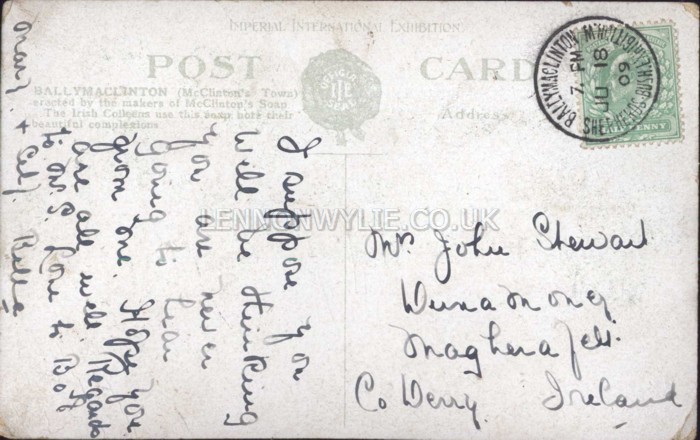 IMPERIAL INTERNATIONAL EXHIBITION
POST CARD
BALLYMACLINTON (McClinton's Town)
erected by the makers of McClinton's Soap
The Irish Colleens use this soap note their
beautiful complexions
Address
BALLYMACLINTON
SHEPHERDS BUSH.
7 PM
18
09
HALFPENNY
LENNONWYLIE.CO.UK
I suppose you
will be thinking
you are never
going to hear
from me. Hope you
are all well. Regards
to Mr S. love to Boy
Mary + Bella
Mrs John Stewart
Dunamoney
Magherafelt
Co Derry. Ireland